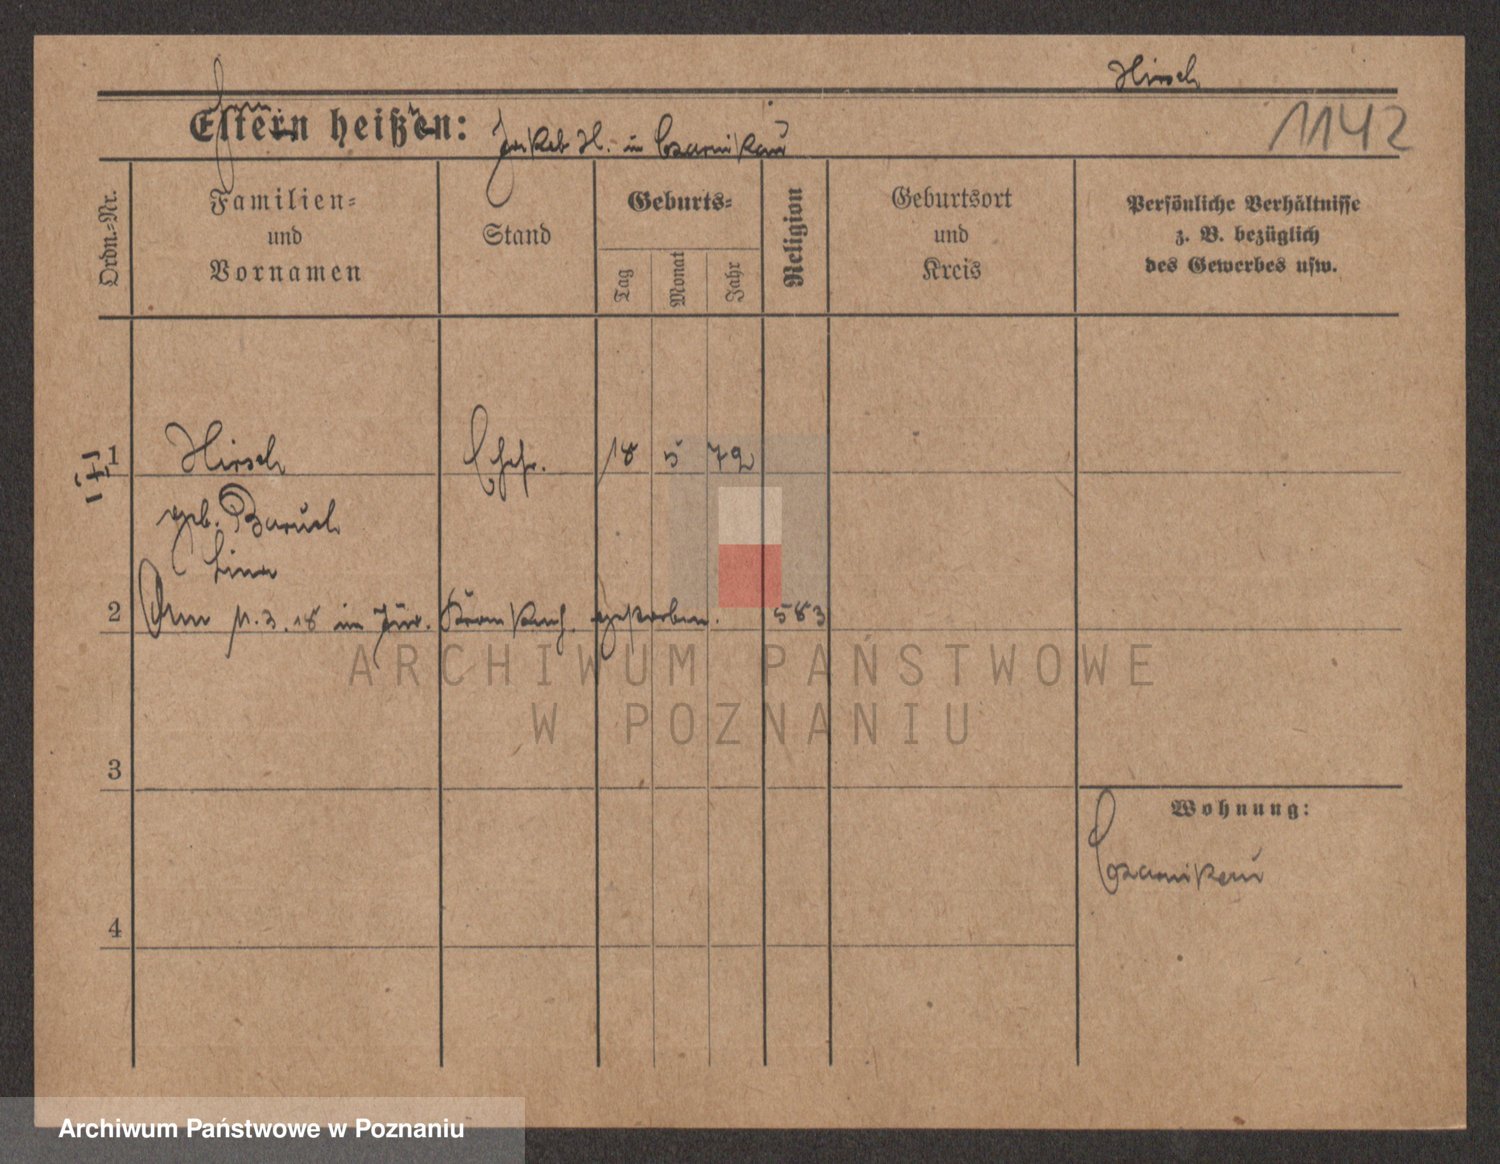 Hirsch
1142
Eltern heißen: Jakob H. in Czarnikau
Ordn.-Nr.
Familien- und Vornamen
Stand
Geburts-
Tag
Monat
Jahr
Religion
Geburtsort und Kreis
Persönliche Verhältnisse z. B. bezüglich des Gewerbes usw.
1
Hirsch
Ehefr.
18
5
72
geb. Baruch
Lina
2
Am 11.3.18 im Jüd. Krankenh. gestorben. 583
ARCHIWUM PAŃSTWOWE
W POZNANIU
3
Wohnung:
Czarnikau
4
Archiwum Państwowe w Poznaniu